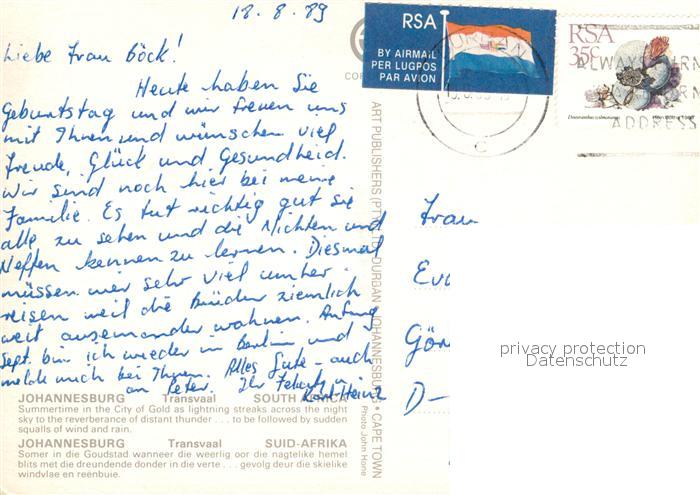 18.8.89
Liebe Frau Böck!
Heute haben Sie
Geburtstag und wir freuen uns
mit Ihnen und wünschen viel
Freude, Glück und Gesundheid.
Wir sind noch hier bei meine
Familie. Es tut richtig gut sie
alle zu sehen und die Nichten und
Neffen kennen zu lernen. Diesmal
müssen wir sehr viel umher
reisen weil die Brüder ziemlich
weit auseinander wohnen. Anfang
Sept. bin ich wieder in Berlin und
melde mich bei Ihnen. Alles Gute - auch
an Peter. Ihr
Karl-Heinz
RSA
BY AIRMAIL
PER LUGPOS
PAR AVION
RSA
35c
ALWAYS
ADDRESS
C
ART PUBLISHERS (PTY) LTD. DURBAN • JOHANNESBURG • CAPE TOWN
Photo John Hone
Frau
Gör
D-
privacy protection
Datenschutz
JOHANNESBURG Transvaal SOUTH AFRICA
Summertime in the City of Gold as lightning streaks across the night
sky to the reverberance of distant thunder . . . to be followed by sudden
squalls of wind and rain.
JOHANNESBURG Transvaal SUID-AFRIKA
Somer in die Goudstad wanneer die weerlig oor die nagtelike hemel
blits met die dreundende donder in die verte . . . gevolg deur die skielike
windvlae en reënbuie.